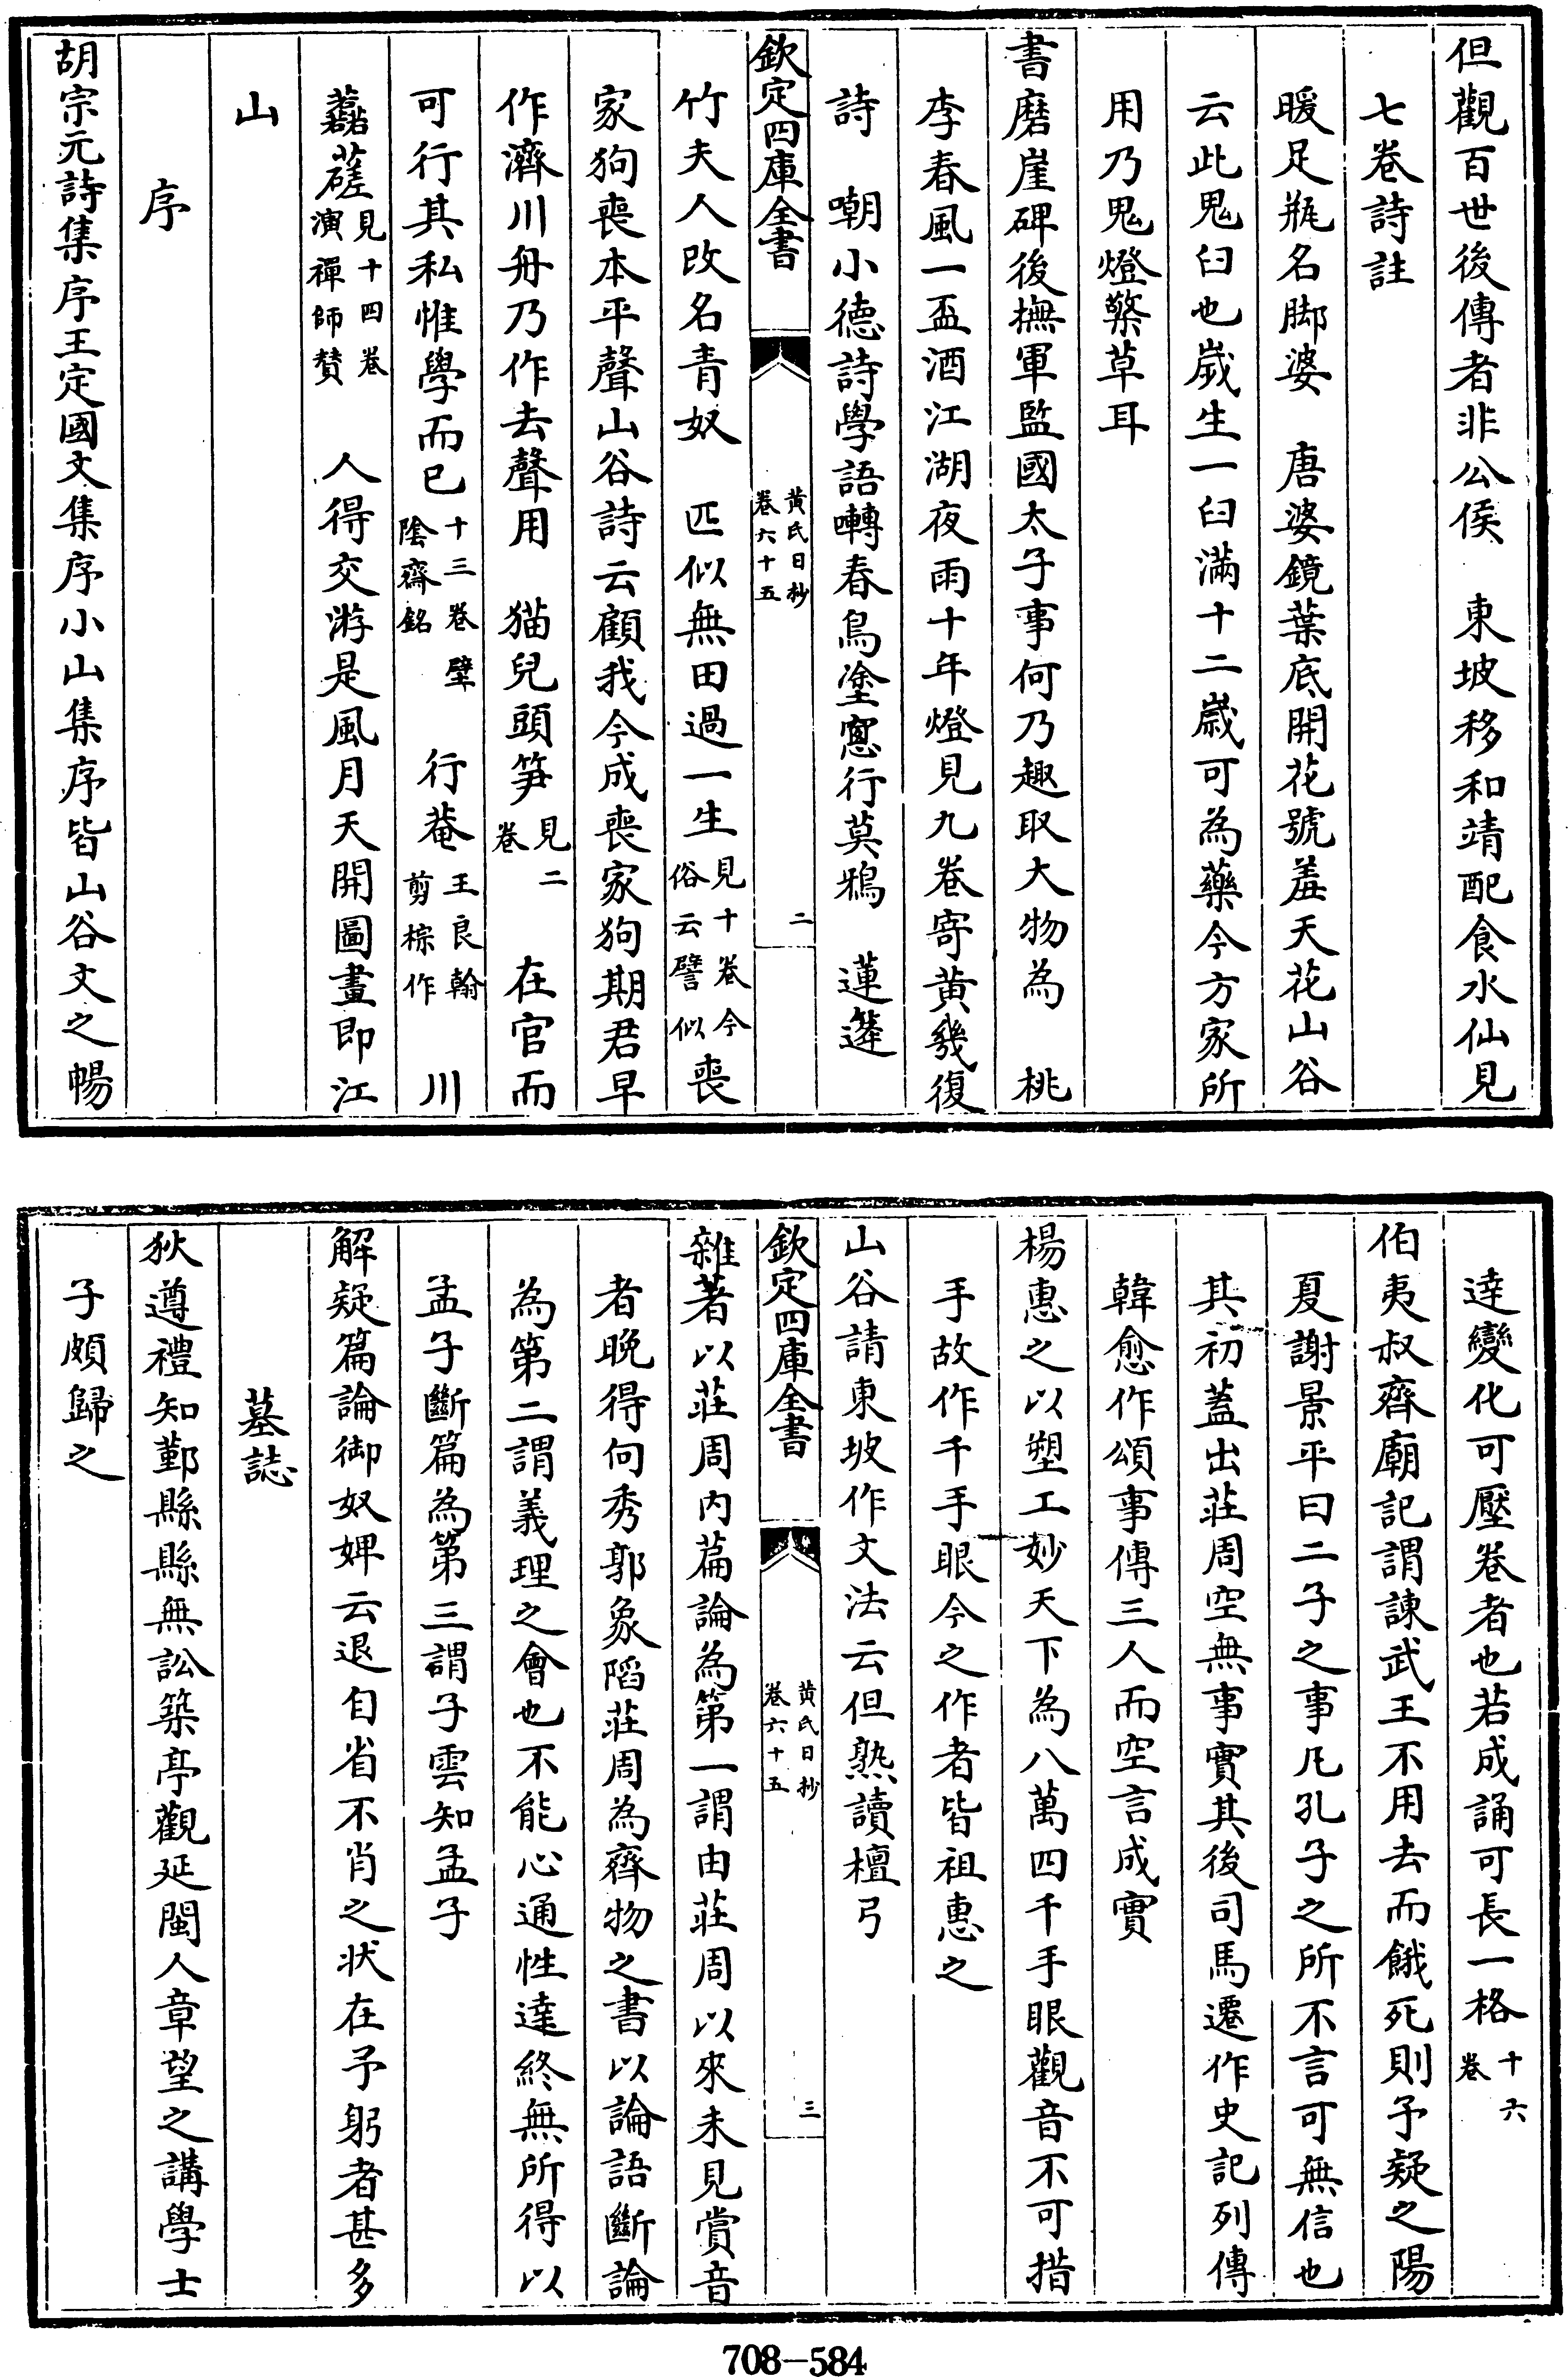 但觀百世後傳者非公侯　東坡移和靖配食水仙見
七卷詩註
暖足瓶名脚婆　唐婆鏡葉底開花號羞天花山谷
云此鬼臼也嵗生一臼滿十二嵗可為藥今方家所
用乃鬼燈檠草耳
書磨崖碑後撫軍監國太子事何乃趣取大物為　桃
李春風一盃酒江湖夜雨十年燈見九卷寄黄幾復
詩　嘲小德詩學語囀春鳥塗窻行莫鴉　蓮𨗿
欽定四庫全書
黄氏日抄
卷六十五
二
竹夫人改名青奴　匹似無田過一生見十卷今
俗云譬似喪
家狗喪本平聲山谷詩云顧我今成喪家狗期君早
作濟川舟乃作去聲用　猫兒頭筍見二
卷　在官而
可行其私惟學而已十三卷壁
陰齋銘　行菴王良翰
剪棕作　川
蘽𦿶見十四卷
演禪師賛　人得交游是風月天開圖畫即江
山
序
胡宗元詩集序王定國文集序小山集序皆山谷文之暢
達變化可壓卷者也若成誦可長一格十六
卷
伯夷叔齊廟記謂諫武王不用去而餓死則予疑之陽
夏謝景平曰二子之事凡孔子之所不言可無信也
其初蓋出莊周空無事實其後司馬遷作史記列傳
韓愈作頌事傳三人而空言成實
楊惠之以塑工妙天下為八萬四千手眼觀音不可措
手故作千手眼今之作者皆祖惠之
山谷請東坡作文法云但熟讀檀弓
欽定四庫全書
黄氏日抄
卷六十五
三
雜著以莊周内篇論為第一謂由莊周以來未見賞音
者晚得向秀郭象陷莊周為齊物之書以論語斷論
為第二謂義理之會也不能心通性達終無所得以
孟子斷篇為第三謂子雲知孟子
解疑篇論御奴婢云退自省不肖之状在予躬者甚多
墓誌
狄遵禮知鄞縣縣無訟築亭觀延閩人章望之講學士
子頗歸之
708—584